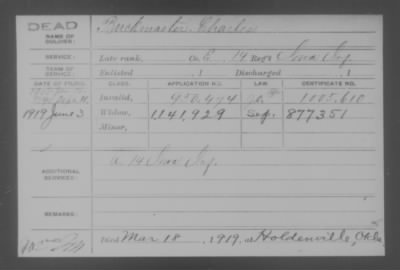 DEAD
NAME OF SOLDIER:
Buckmaster, Charles
SERVICE:
Late rank, Co. E, 14 Reg't Iowa Inf.
TERM OF SERVICE:
Enlisted , 1 Discharged , 1
DATE OF FILING. CLASS. APPLICATION NO. LAW. CERTIFICATE NO.
Invalid, 1.005.610
1919 June 3 Widow, 1,141,929 Sep. 877351
Minor,
ADDITIONAL SERVICES:
A 14 Iowa Inf.
REMARKS:
Died Mar 18, 1919, at Holdenville, Okla